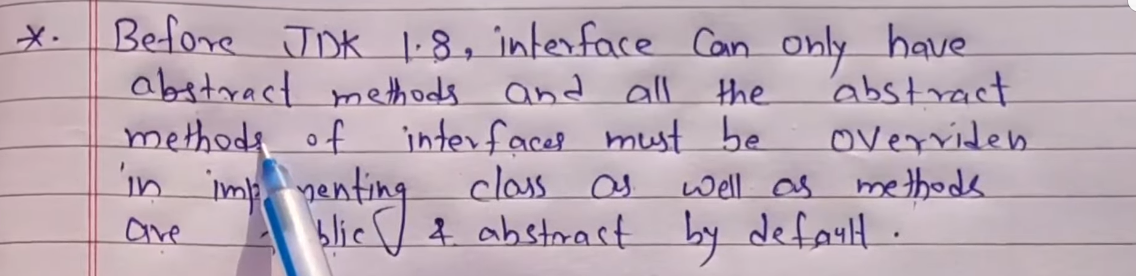 *. Before JDK 1.8, interface Can only have
abstract methods and all the abstract
methods of interfaces must be overriden
in implementing class as well as methods
are public & abstract by default.